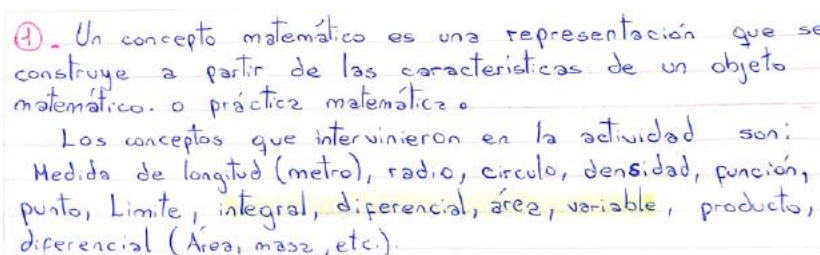 ①_ Un concepto matemático es una representación que se
construye a partir de las caracteristicas de un objeto
matemático. o práctica matemática.
Los conceptos que intervinieron en la actividad son:
Medida de longitud (metro), radio, circulo, densidad, función,
punto, Limite, integral, diferencial, área, variable, producto,
diferencial (Área, masa, etc.).